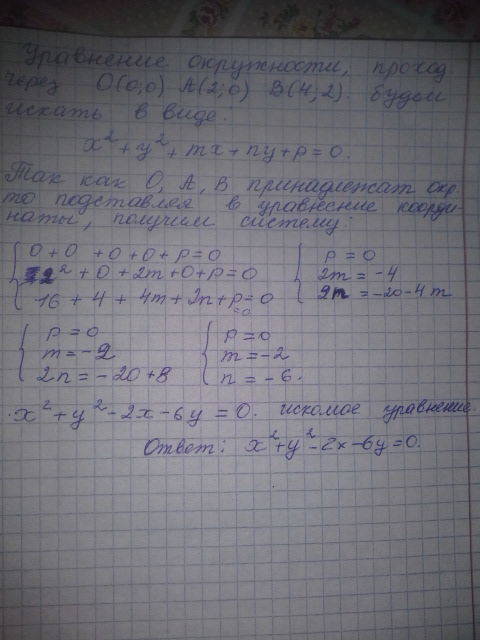 Уравнение окружности, проход.
через O(0;0) A(2;0) B(4;2). будем
искать в виде.
x² + y² + mx + ny + p = 0.
Так как O, A, B принадлежат окр.
то подставляя в уравнение коорди-
наты, получим систему:
0 + 0 + 0 + 0 + p = 0
2² + 0 + 2m + 0 + p = 0
16 + 4 + 4m + 2n + p = 0
=0
p = 0
2m = -4
2n = -20 - 4m
p = 0
m = -2
2n = -20 + 8
p = 0
m = -2
n = -6.
x² + y² - 2x - 6y = 0. искомое уравнение.
Ответ: x² + y² - 2x - 6y = 0.